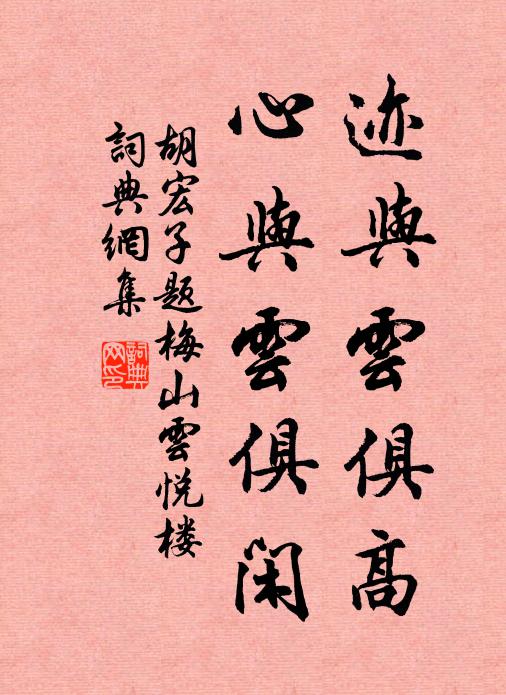 迹與雲俱高
心與雲俱閑
胡宏子题梅山雲悦楼
詞典網集
詞典网印